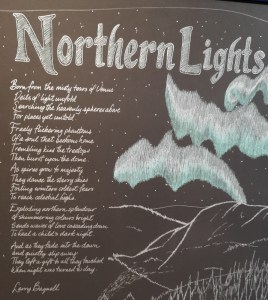 Northern Lights
Born from the misty tears of Venus
Veils of light unfold
Searching the heavenly spheres above
For places yet untold
Freely flickering phantoms
Of a soul that beckons home
Trembling kiss the treetops
Then burst upon the dome
As spirits grow to majesty
They dance the starry skies
Foiling winters coldest fears
To reach celestial highs
Exploding northern splendour
Of shimmering colours bright
Sends waves of love cascading down
To heal a child's dark night
And as they fade into the dawn
and quietly slip away
They left a gift to all they touched
When night was turned to day
Larry